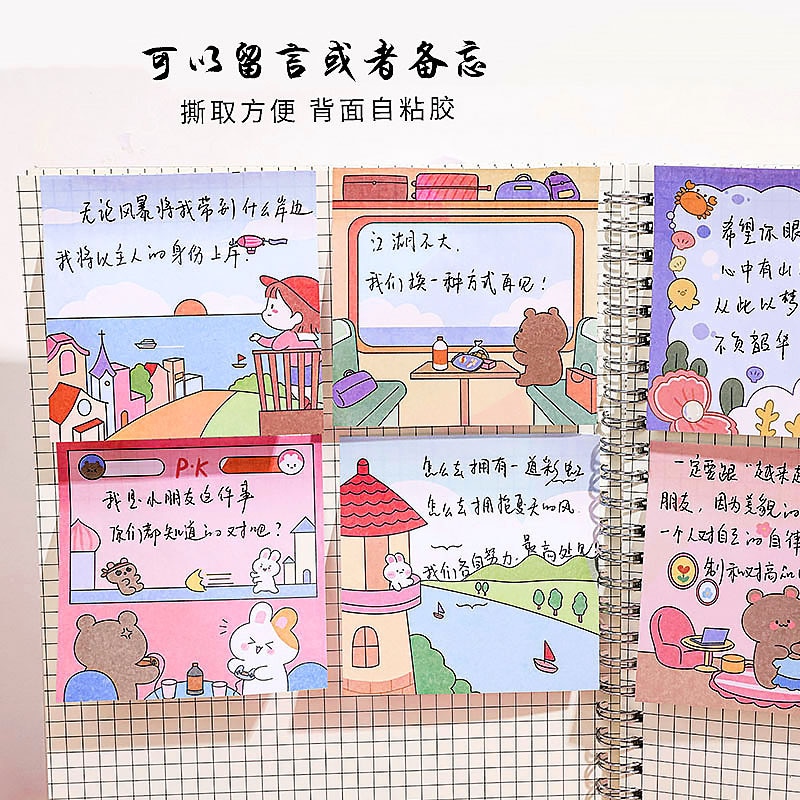 可以留言或者备忘
撕取方便 背面自粘胶
无论风暴将我带到什么岸边
我将以主人的身份上岸.
江湖不大,
我们换一种方式再见!
希望你眼
心中有山
从此以梦
不负韶华
P·K
我是小朋友这件事
你们都知道的对吧?
怎么去拥有一道彩虹
怎么去拥抱夏天的风.
我们各自努力.最高处见
一定要跟"越来越
朋友,因为美貌的
一个人对自己的自律
制和对高品